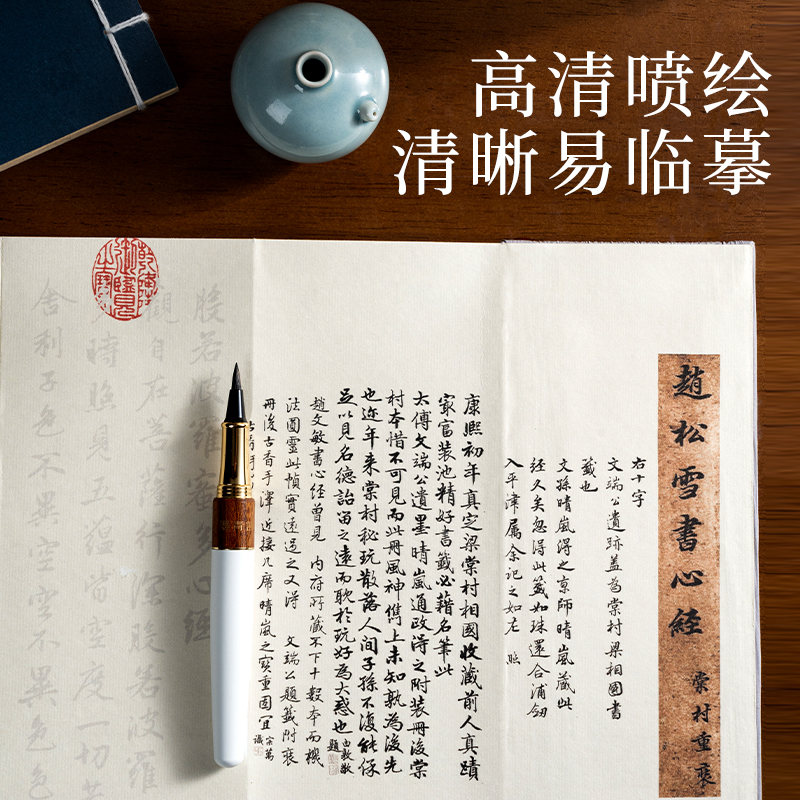 高清喷绘
清晰易临摹
趙松雪書心經
棠村重裝
右十字
文端公遺跡蓋為棠村梁相國書
籤也
文孫晴嵐得之京師晴嵐藏此
經久矣忽得此籤如珠還合浦劒
入平津屬余記之如左 照
康熙初年真定梁棠村相國收藏前人真蹟
家富裝池精好書籤必藉名筆此
太傅文端公遺墨晴嵐通政得之附装冊後棠
村本惜不可見而此冊風神儁上未知孰為後先
也近年来棠村秘玩散落人間子孫不復能保
足以見名德詒留之遠而耽於玩好為大惑也 由敦敬題
趙文敏書心經曾見 内府所藏不下十數本而機
法圓靈此幀實遠過之又得 文端公題籤附裝
冊後古香手澤近接几席晴嵐之寶重固宜 宗萬識
般若波羅蜜多心經
觀自在菩薩行深般若波羅
時照見五緼皆空度一切苦
舍利子色不異空空不異色色